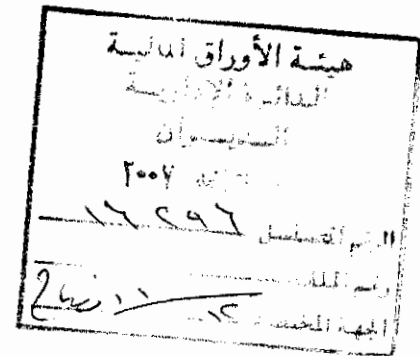 هيئة الأوراق المالية
الدائرة الإدارية
الديوان
٢٠٠٧
الرقم المتسلسل ١٦٢٩٦
رقم الملف
الجهة المختصة